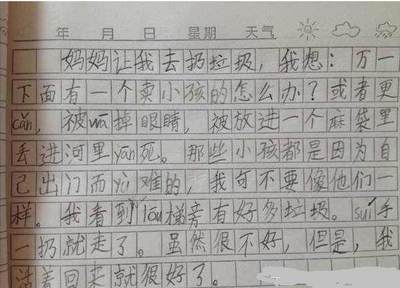 年 月 日 星期 天气
妈妈让我去扔垃圾，我想：万一
下面有一个卖小孩的怎么办？或者更
cǎn，被wā掉眼睛，被放进一个麻袋里
丢进河里yān死。那些小孩都是因为自
己出门而yù难的，我可不要像他们一
样。我看到lōu梯旁有好多垃圾。suí手
一扔就走了。虽然很不好，但是，我
活着回来就很好了。